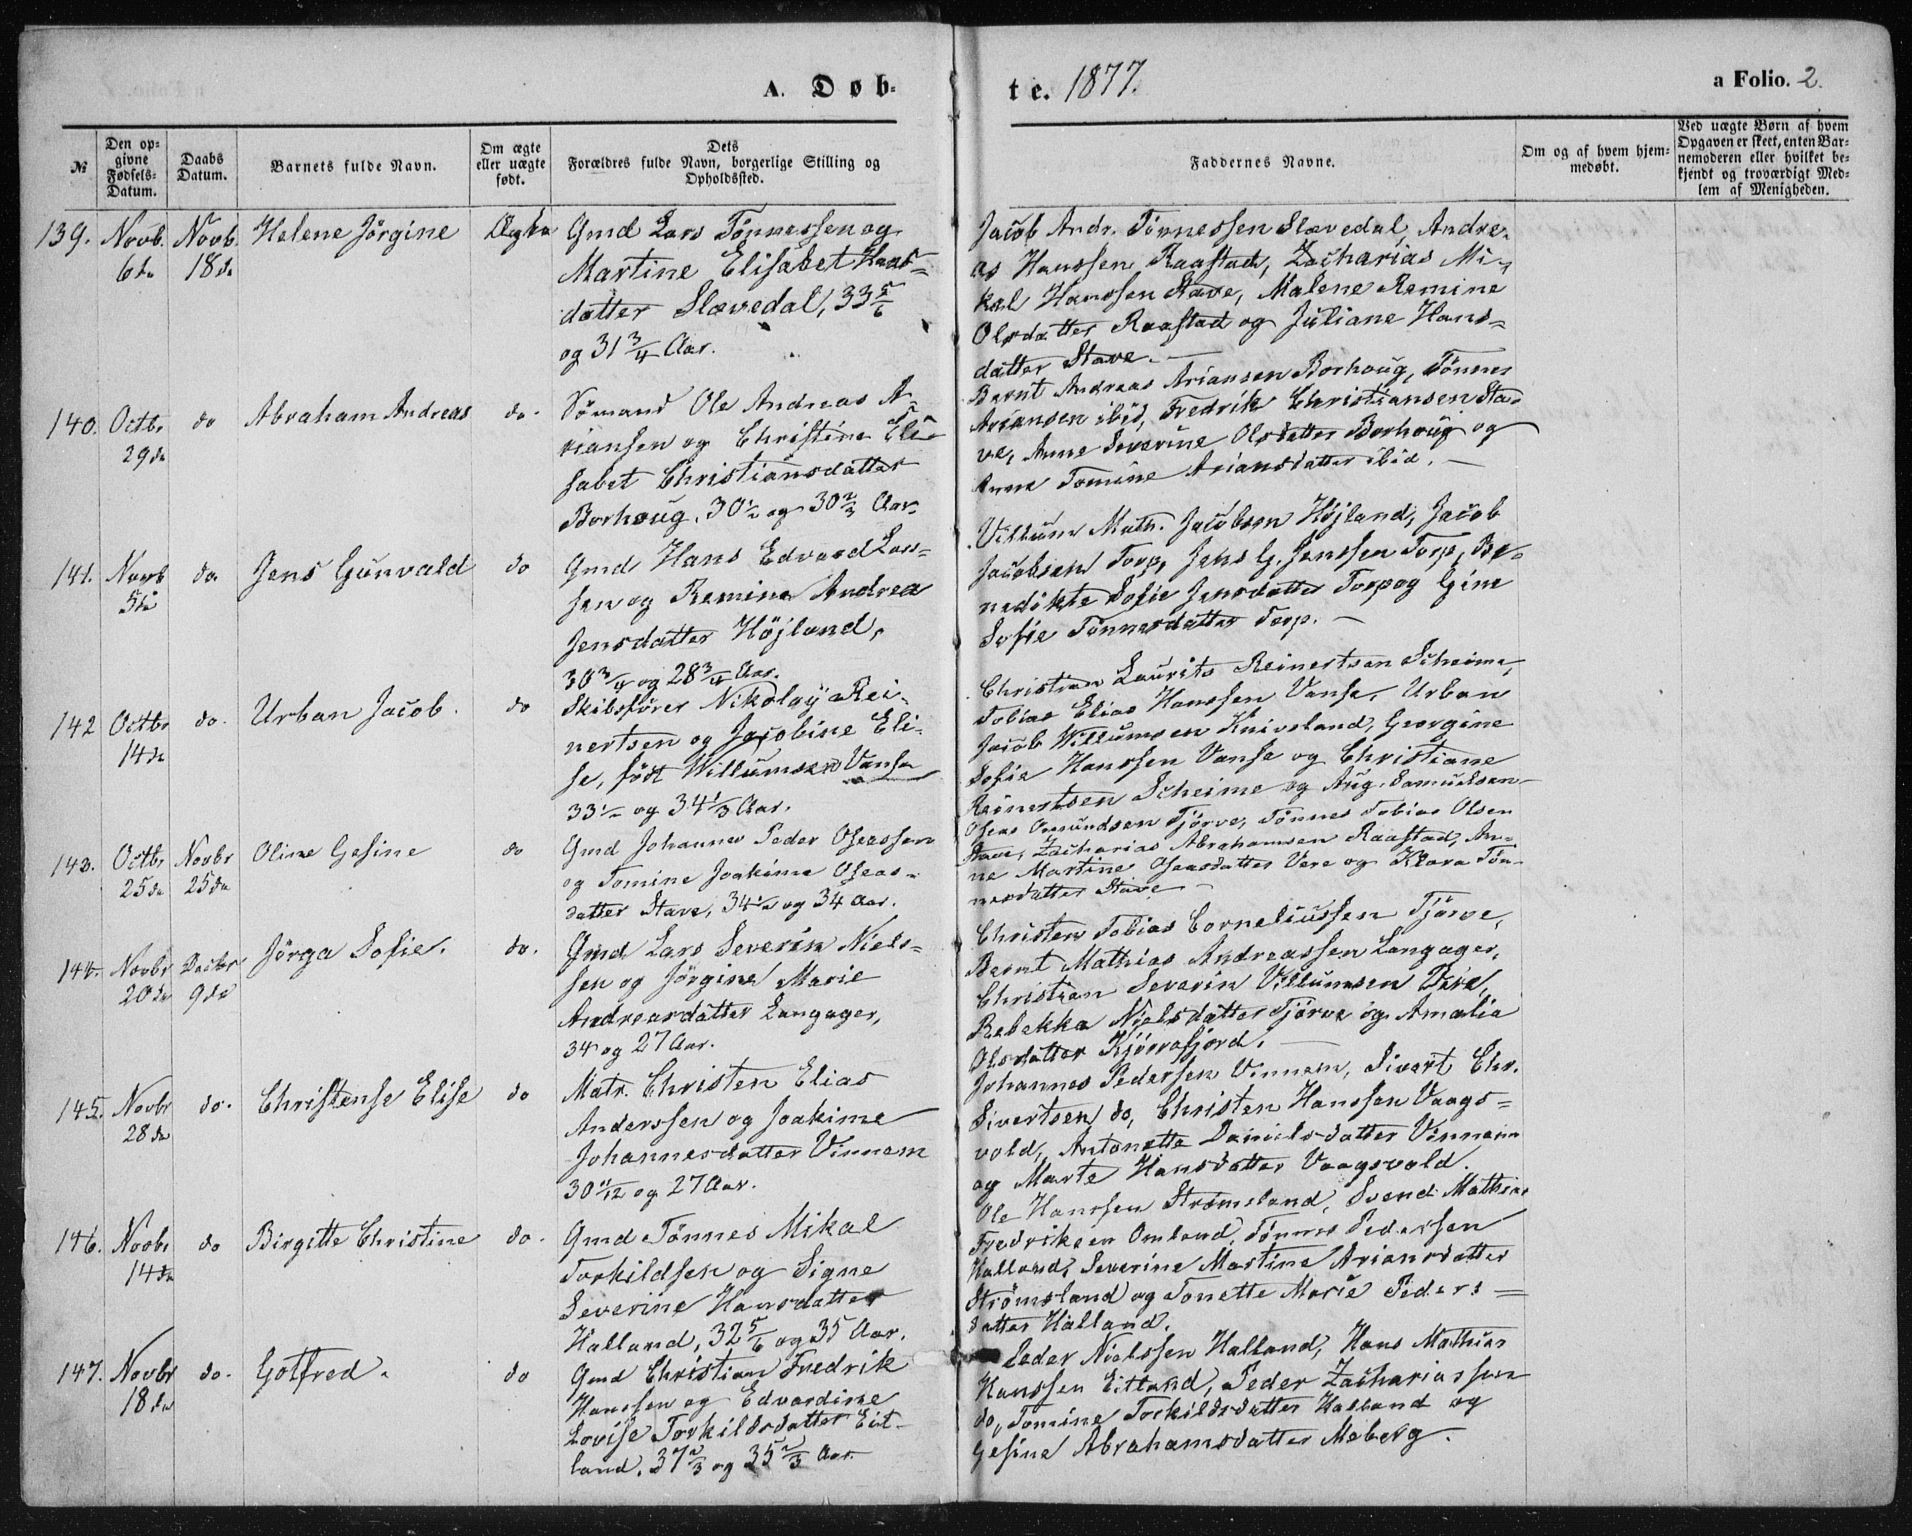 A. Døb-
te. 1877.
a Folio. 2.
№
Den opgivne Fødsels-Datum.
Daabs Datum.
Barnets fulde Navn.
Om ægte eller uægte født.
Dets Forældres fulde Navn, borgerlige Stilling og Opholdssted.
Faddernes Navne.
Om og af hvem hjemmedøbt.
Ved uægte Børn af hvem Opgaven er skeet, enten Barnemoderen eller hvilket bekjendt og troværdigt Medlem af Menigheden.
139. Novb. 6te Novb. 18de Helene Jörgine Ægte
Gmd Lars Tönnessen og
Martine Elisabet Haas-
datter Slævedal, 33 5/6
og 31 3/4 Aar.
Jacob Andr. Tönnessen Slævedal, Andre-
as Hanssen Raastad, Zacharias Mi-
kal Hanssen Stave, Malene Remine
Olsdatter Raastad og Juliane Hans-
datter Stave. —
140. Octbr 29de do Abraham Andreas do.
Sömand Ole Andreas A-
riansen og Christine Eli-
sabet Christiansdatter
Borhoug, 30 1/2 og 30 2/3 Aar.
Bernt Andreas Ariansen Borhoug, Tönnes
Ariansen ibid, Fredrik Christiansen Sta-
ve, Anne Severine Olsdatter Borhoug og
Anne Tomine Ariansdatter ibid. —
141. Novb 5te do. Jens Gunvald do
Gmd Hans Edvard Lar-
sen og Remine Andrea
Jensdatter Höjland,
30 3/4 og 28 3/4 Aar.
Villum Math. Jacobsen Höjland, Jacob
Jacobsen Torp, Jens G. Jenssen Torp, Be-
nedikte Sofie Jensdatter Torp og Gine
Sofie Tönnesdatter Torp. —
142 Octbr 14de do. Urban Jacob. do
Skibsförer Nikolay Rei-
nertsen og Jacobine Eli-
se, födt Willumsen Vanse
33 1/2 og 34 1/3 Aar.
Christian Laurits Reinertsen Scheime,
Tobias Elias Hanssen Vanse, Urban
Jacob Willumsen Knivsland, Georgine
Sofie Hanssen Vanse og Christiane
Reinertsen Scheime og Aug. Samuelsen
143. Octbr 25de Novbr 25de Oline Gesine do
Gmd Johannes Peder Oseassen
og Tomine Joakime Oseas-
datter Stave, 34 1/2 og 34 Aar.
Oseas Omundsen Tjörve, Tönnes Tobias Olsen
Stave, Zacharias Abrahamsen Raastad, An-
ne Martine Oseasdatter Vere og Klara Tön-
nesdatter Stave —
144. Novbr 20de Decbr 9de Jörga Sofie. do.
Gmd Lars Severin Niels-
sen og Jörgine Marie
Andreasdatter Langager,
34 og 27 Aar.
Christen Tobias Corneliussen Tjörve,
Bernt Mathias Andreassen Langager,
Christian Severin Villumsen Vere,
Rebekka Nielsdatter Tjörve og Amalia
Olsdatter Kjörrefjord. —
145. Novbr 28de do. Christense Elise do
Matr. Christen Elias
Anderssen og Joakime
Johannesdatter Vinnem
30 11/12 og 27 Aar.
Johannes Pedersen Vinnem, Sivert Chr.
Sivertsen do, Christen Hanssen Vaags-
vold, Antonette Danielsdatter Vinnem
og Marte Hansdatter Vaagsvold.
146. Novbr 14de do Birgitte Christine do.
Gmd Tönnes Mikal
Torkildsen og Signe
Severine Hansdatter
Halland, 32 5/6 og 35 Aar.
Ole Hanssen Strömsland, Svend Mathias
Fredriksen Omland, Tönnes Pederssen
Halland, Severine Martine Ariansdatter
Strömsland og Tonette Marie Peders-
datter Halland.
147. Novbr 18de do. Gotfred. do
Gmd Christian Fredrik
Hanssen og Edvardine
Lovise Torkildsdatter Eit-
land, 37 2/3 og 35 2/3 Aar.
Peder Nielssen Halland, Hans Mathias
Hanssen Eitland, Peder Zachariassen
do, Tomine Torkildsdatter Halland og
Gesine Abrahamsdatter Meberg.